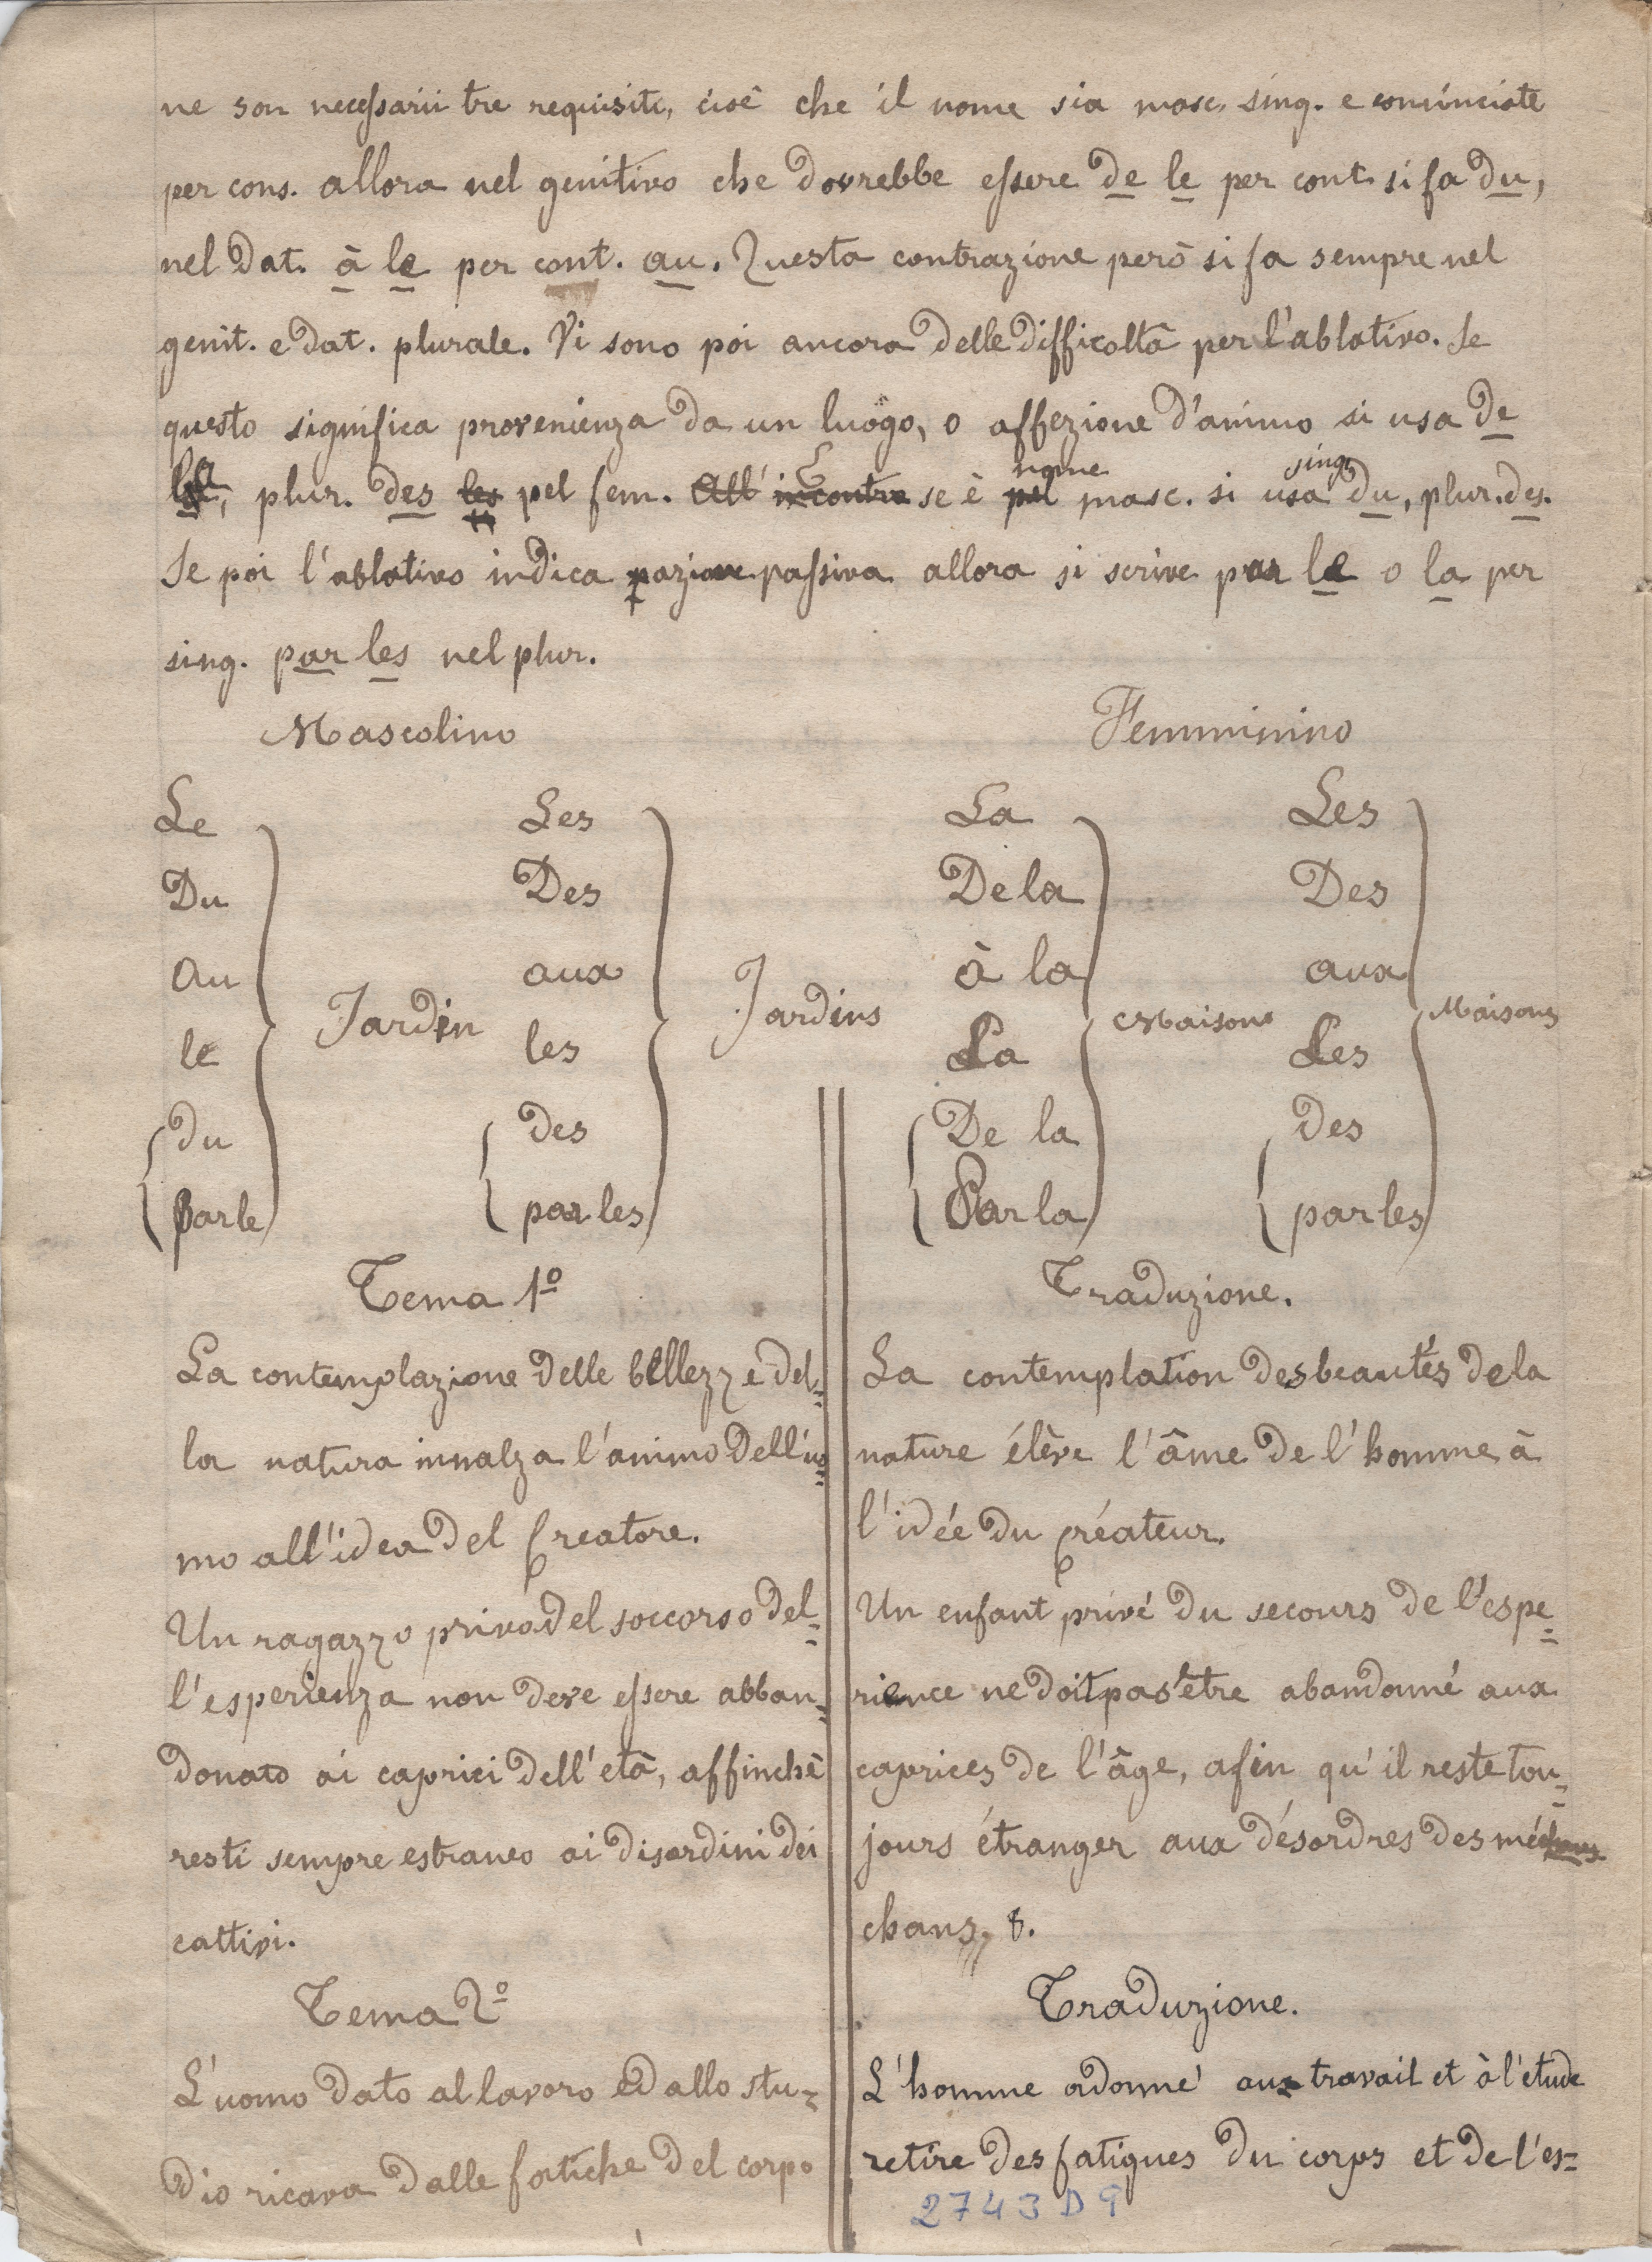 ne son necessarii tre requisiti, cioè che il nome sia masc. sing. e cominciate
per cons. allora nel genitivo che dovrebbe essere de le per cont. si fa du,
nel dat. à le per cont. au. Questa contrazione però si fa sempre nel
genit. e dat. plurale. Vi sono poi ancora delle difficoltà per l'ablativo. Se
questo significa provenienza da un luogo, o affezione d'animo si usa de
la, plur. des les pel fem. All' incontro E se è pel nome masc. si usa sing. du, plur. des.
Se poi l'ablativo indica azione passiva allora si scrive par le o la per
sing. par les nel plur.
Mascolino
Femminino
Le Les La Les
Du Des De la Des
au aux à la aux
Jardin Jardins Maison Maisons
le les La Les
du des De la des
Par le par les Par la par les
Tema 1º
La contemplazione delle bellezze del=
la natura innalza l'animo dell'uo=
mo all'idea del Creatore.
Un ragazzo privo del soccorso del=
l'esperienza non deve essere abban=
donato ai caprici dell'età, affinchè
resti sempre estraneo ai disordini dei
cattivi.
Tema 2º
L'uomo dato al lavoro ed allo stu=
dio ricava dalle fatiche del corpo
Traduzione.
La contemplation des beautés de la
nature élève l'âme de l'homme à
l'idée du Créateur.
Un enfant privé du secours de l'espe=
rience ne doit pas être abandonné aux
caprices de l'âge, afin qu'il reste tou=
jours étranger aux désordres des mé
chans, 8.
Traduzione.
L'homme adonné au travail et à l'étude
retire des fatigues du corps et de l'es=
2743 D 9